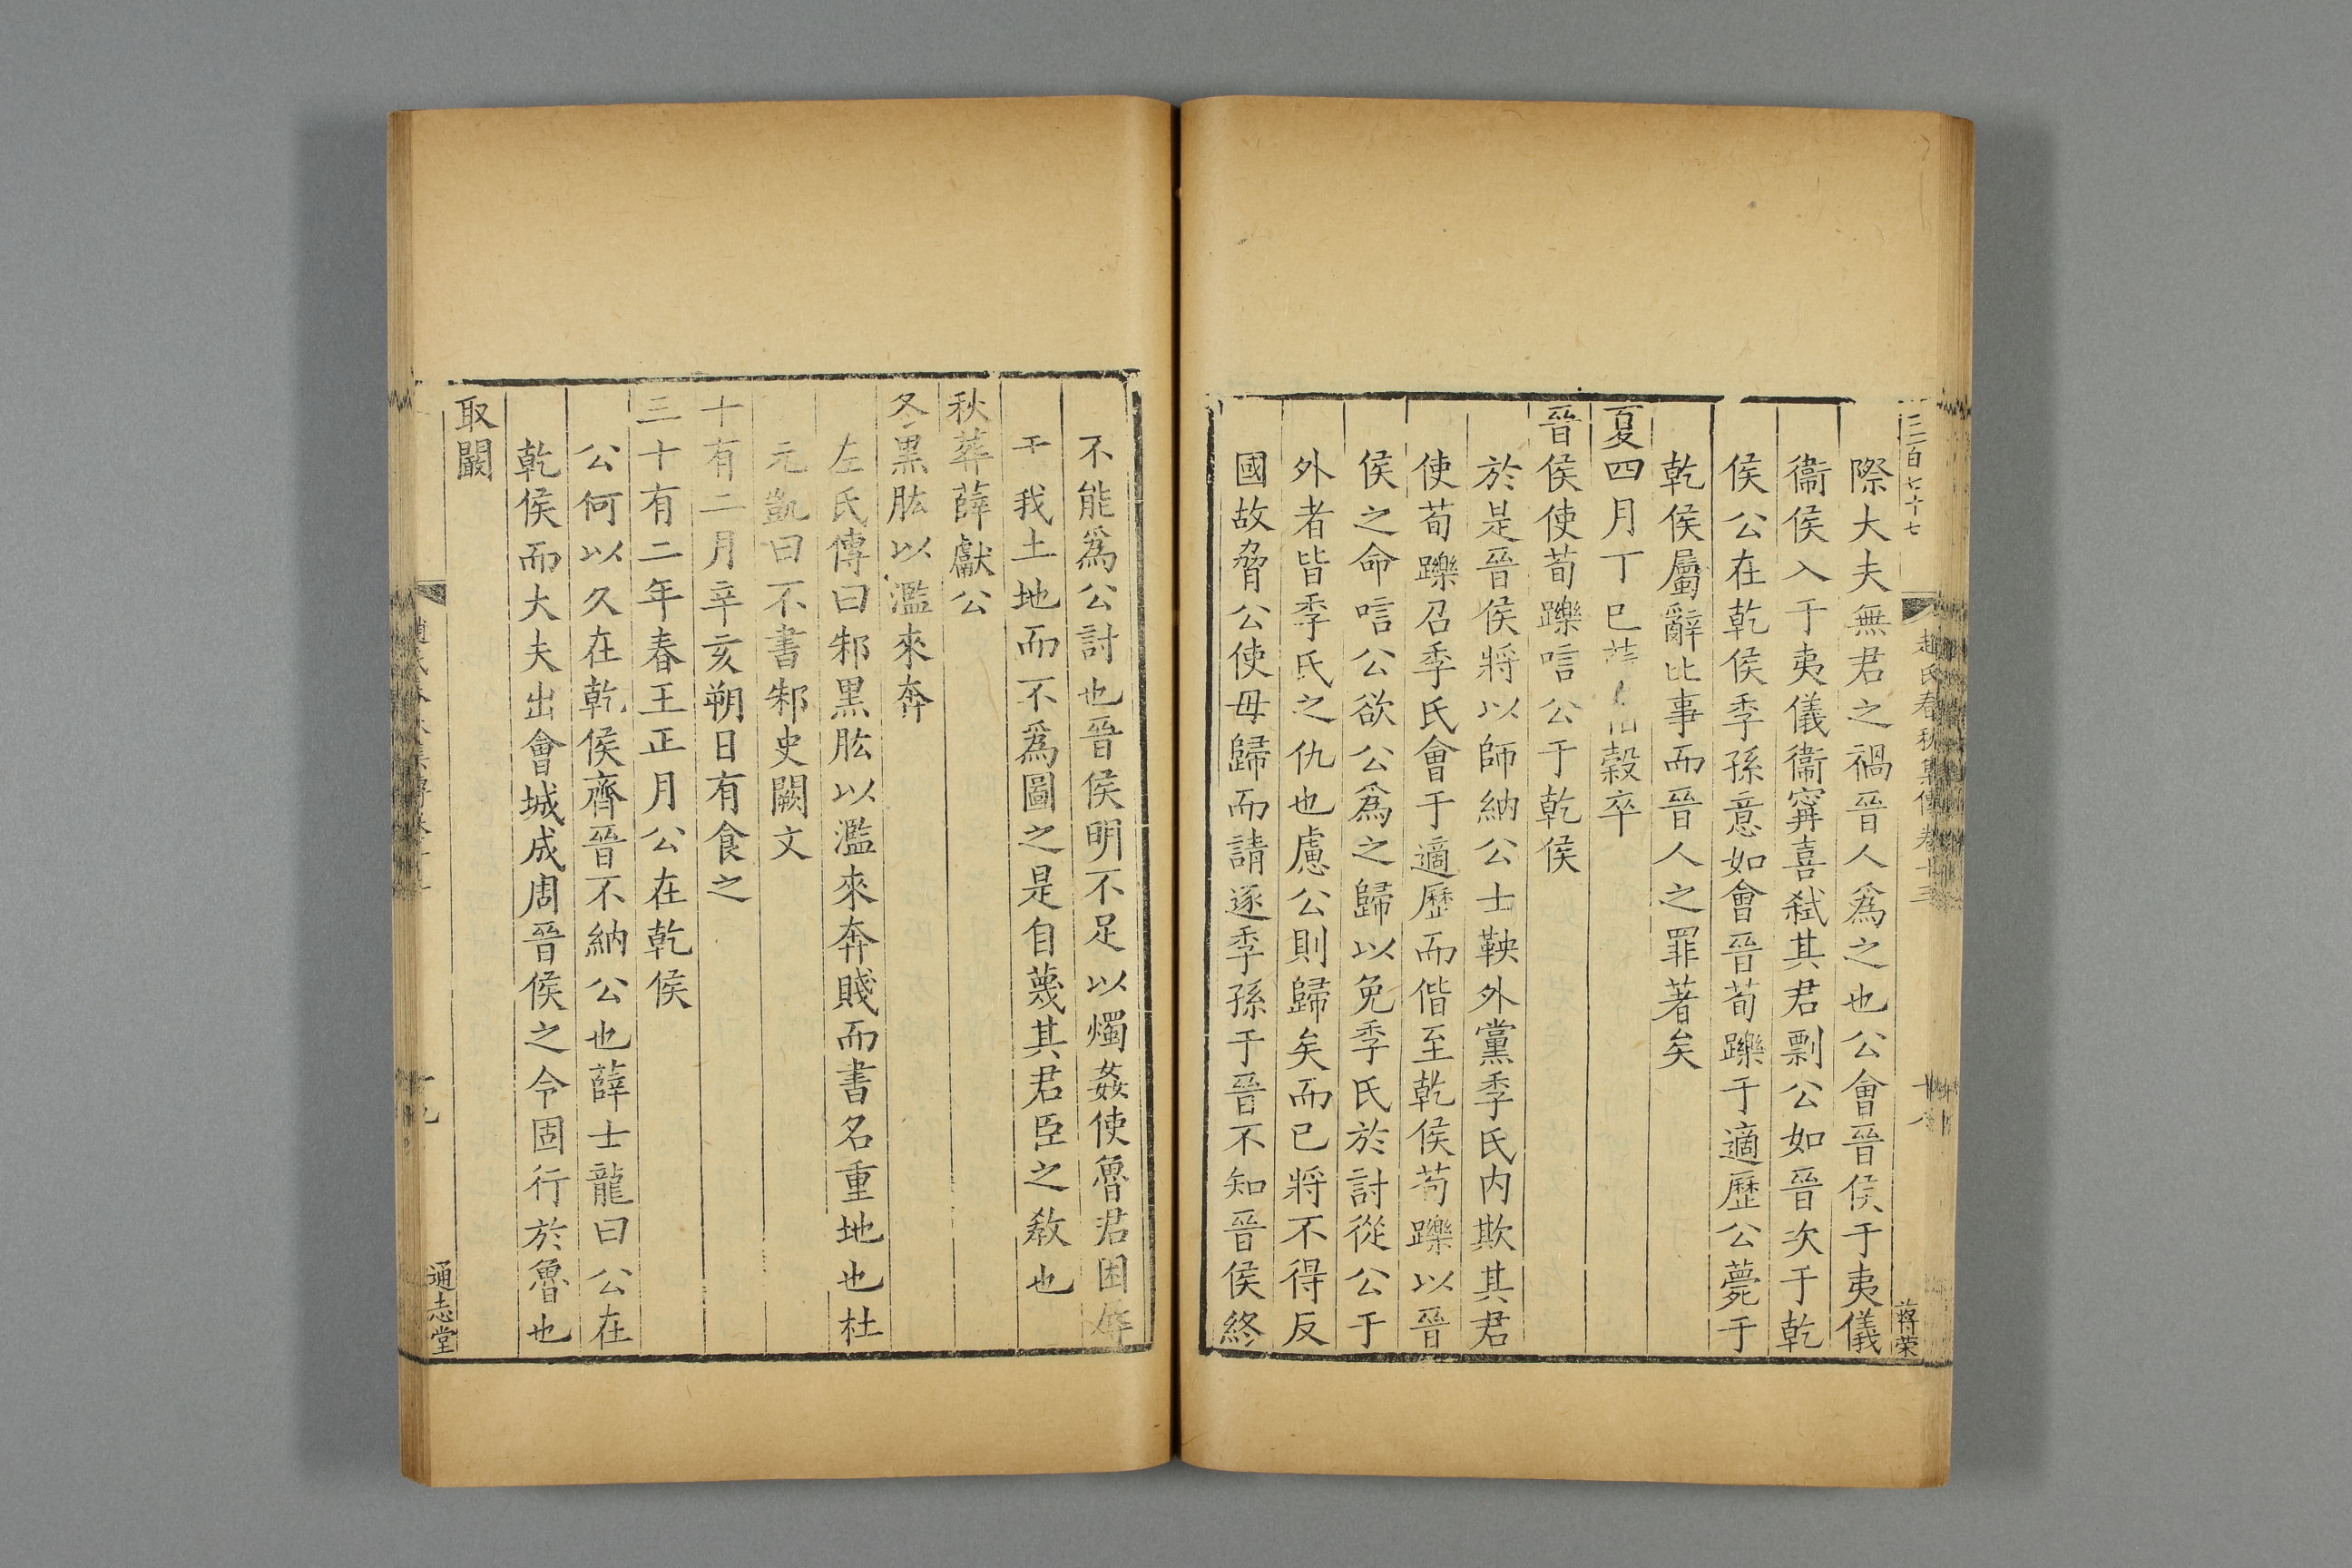 三百七十七
趙氏春秋集傳卷十三
十八
蔣榮
際大夫無君之禍晉人爲之也公會晉侯于夷儀
衞侯入于夷儀衞甯喜弑其君剽公如晉次于乾
侯公在乾侯季孫意如會晉荀躒于適歷公薨于
乾侯屬辭比事而晉人之罪著矣
夏四月丁巳薛伯穀卒
晉侯使荀躒唁公于乾侯
於是晉侯將以師納公士鞅外黨季氏內欺其君
使荀躒召季氏會于適歷而偕至乾侯荀躒以晉
侯之命唁公欲公爲之歸以免季氏於討從公于
外者皆季氏之仇也慮公則歸矣而已將不得反
國故脅公使毋歸而請逐季孫于晉不知晉侯終
不能爲公討也晉侯明不足以燭姦使魯君困辱
于我土地而不爲圖之是自蔑其君臣之敎也
秋葬薛獻公
冬黑肱以濫來奔
左氏傳曰邾黑肱以濫來奔賤而書名重地也杜
元凱曰不書邾史闕文
十有二月辛亥朔日有食之
三十有二年春王正月公在乾侯
公何以久在乾侯齊晉不納公也薛士龍曰公在
乾侯而大夫出會城成周晉侯之令固行於魯也
取闞
通志堂